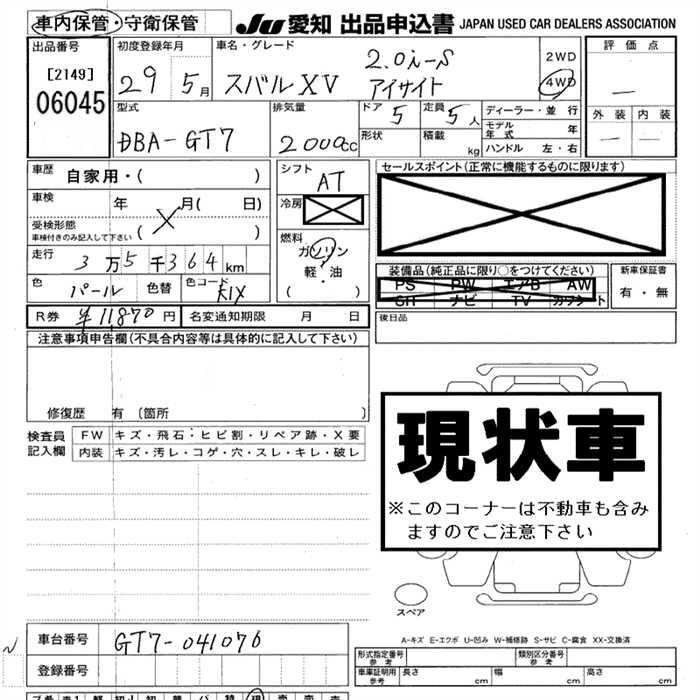 車内保管・守衛保管
JU 愛知 出品申込書 JAPAN USED CAR DEALERS ASSOCIATION
出品番号
[2149]
06045
初度登録年月
29 5月
車名・グレード
スバルXV 2.0i-S アイサイト
2WD
4WD
評価点
—
外装 内装
— —
型式
DBA-GT7
排気量
2000cc
ドア 5
定員 5人
形状
積載 kg
ディーラー・並行
モデル年式 年
ハンドル 左・右
車歴 自家用・( )
車検 年 X 月( 日)
受検形態
車検付きのみ記入して下さい ( )
走行 3万5千364km
色 パール 色替 色コード K1X
R券 ¥11870円 名変通知期限 月 日
シフト
AT
冷房
燃料
ガソリン
軽・油
( )
セールスポイント(正常に機能するものに限ります)
装備品(純正品に限り○をつけてください)
PS PW エアB AW
ナビ TV
新車保証書
有・無
後日品
注意事項申告欄(不具合内容等は具体的に記入して下さい)
修復歴 有(箇所 )
検査員記入欄
FW キズ・飛石・ヒビ割・リペア跡・X要
内装 キズ・汚レ・コゲ・穴・スレ・キレ・破レ
現状車
※このコーナーは不動車も含み
ますのでご注意下さい
スペア
A-キズ E-エクボ U-凹み W-補修跡 S-サビ C-腐食 XX-交換済
車台番号 GT7-041076
登録番号
形式指定番号 参考
類別区分番号 参考
車庫証明用 参考 長さ cm 幅 cm 高さ cm